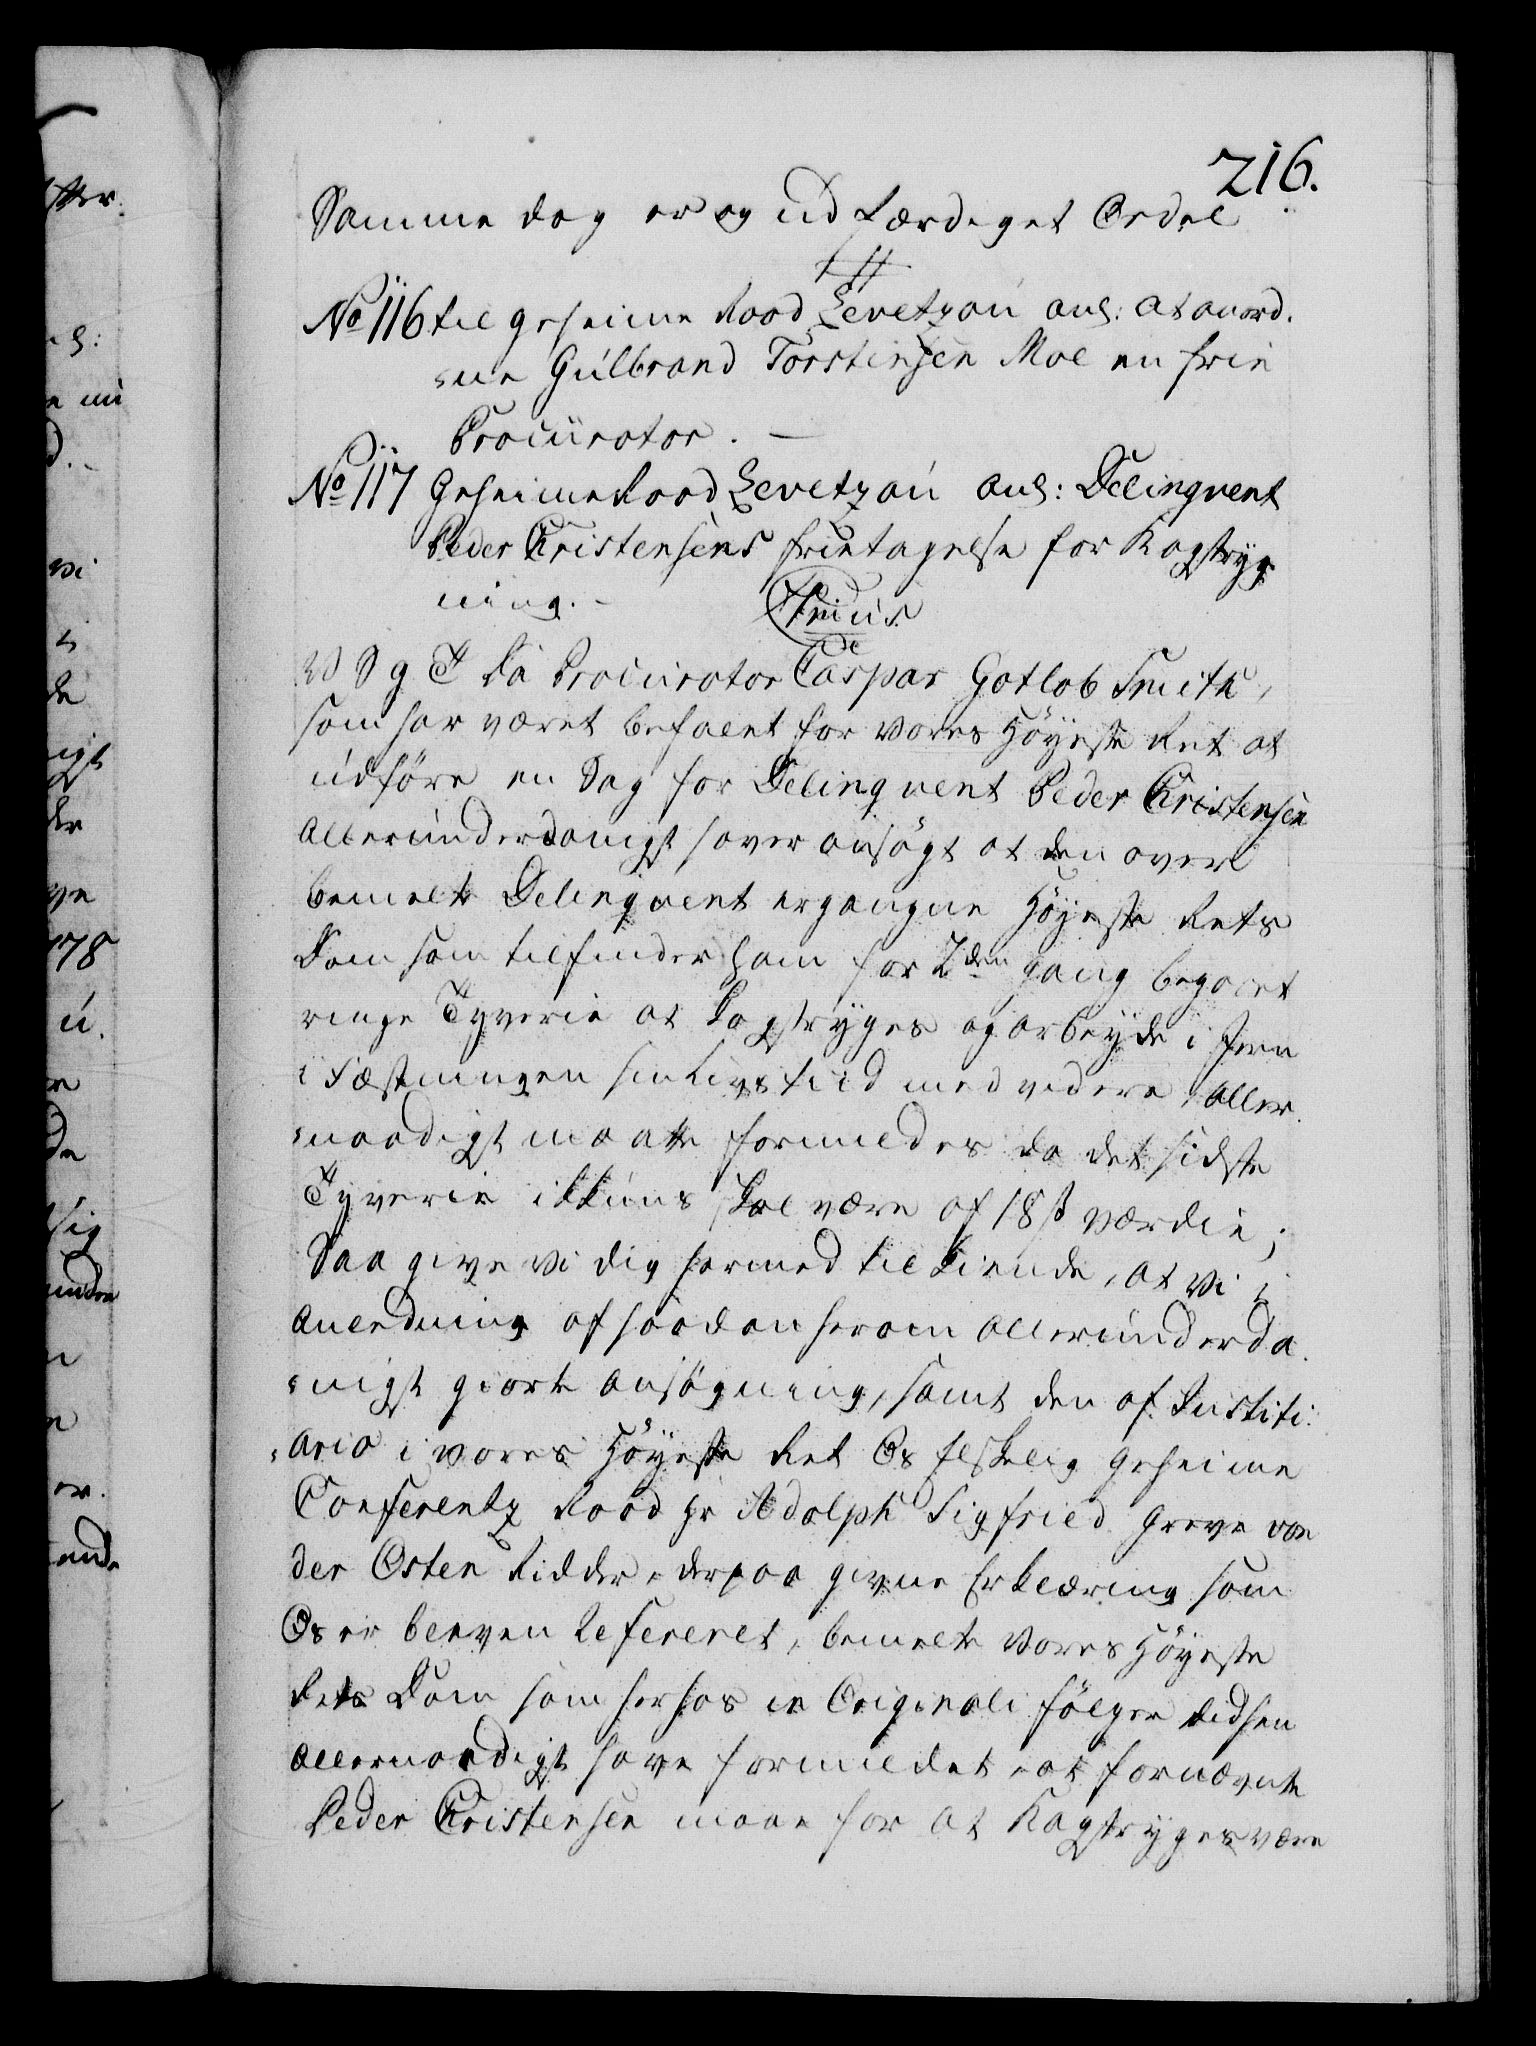 216.
Samme dag er og udfærdeget Ordre
No 116 til geheime Raad Levetzau anl: at anord-
-ne Gulbrand Torstensen Moe en frie
Procurator. —
No 117 Geheime Raad Levetzau anl: Delinqvent
Peder Christensens frietagelse for Kagstryg
ning. -
V S g T Da Procurator Caspar Gotlob Smith,
som har været befalet for vores Höyeste Ret at
udföre en Sag for Delinqvent Peder Christensen
allerunderdanigst haver ansögt at den over
bemelte Delinqvent ergangne Höyeste Rets
Dom som tilfinder ham for 2den gang begaaet
ringe Tyverie at Kagstryges og arbeyde i Jern
i Fæstningen sin Livs tiid med videre, aller
-naadigst maatte formildes da det sidste
Tyverie ikkuns skal være af 18 ß værdie;
Saa give vi dig hermed til kiende, at vi i
anledning af saadan herom allerunderda
-nigst giorte ansögning, samt den af Justiti
-ario i vores Höyeste Ret Os elskelig geheime
Conferentz Raad Hr Adolph Sigfried Greve von
der Osten Ridder, derpaa givne Erklæring som
Os er bleven Refereret, bemelte vores Höyeste
Rets Dom som herhos in Originali fölger lidsen
allernaadigst have formildet, at fornævnte
Peder Christensen maae for at Kagstryges være